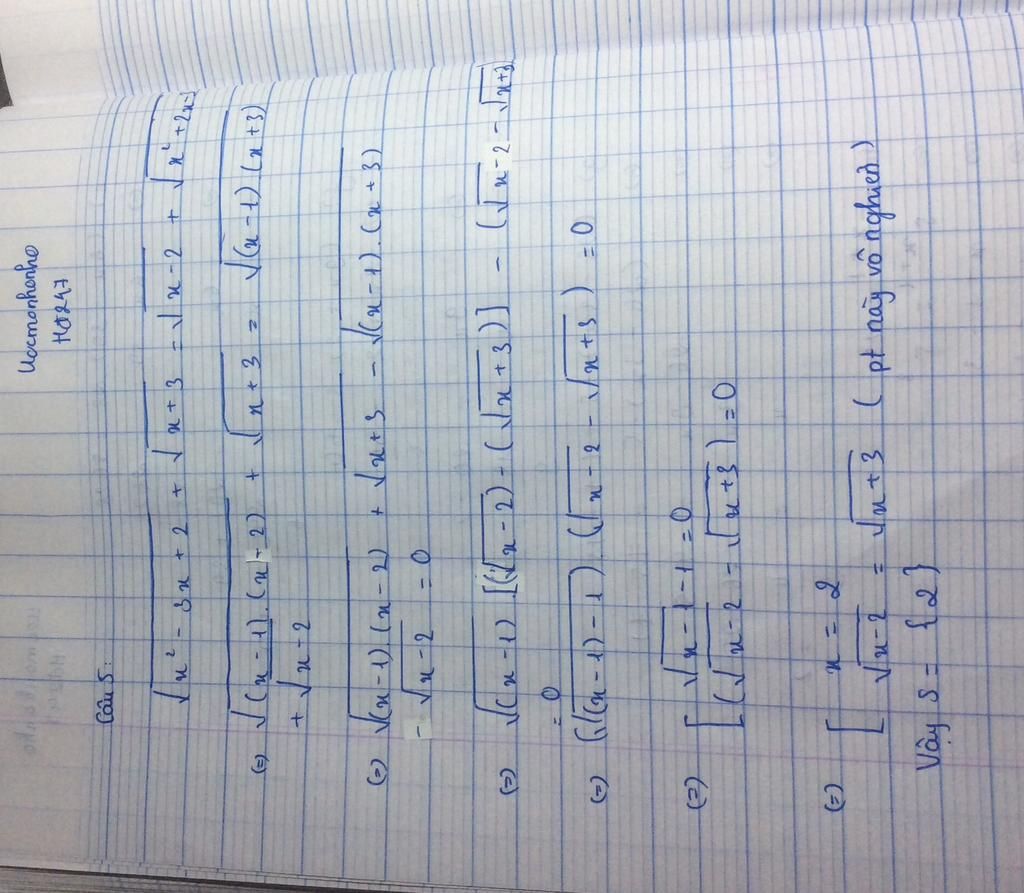 Hoctronhonho
H0247
Câu 5:
√(x² - 3x + 2) + √(x + 3) = √(x - 2) + √(x² + 2x -
(=) √((x - 1).(x - 2)) + √(x + 3) = √((x - 1)(x + 3))
+ √(x - 2)
(=) √((x - 1)(x - 2)) + √(x + 3) - √((x - 1).(x + 3))
- √(x - 2) = 0
(=) √(x - 1) [(√(x - 2)) - (√(x + 3))] - (√(x - 2) - √(x + 3)
= 0
(=) (√(x - 1) - 1) . (√(x - 2) - √(x + 3)) = 0
(=) [ √(x - 1) - 1 = 0
[ (√(x - 2) - √(x + 3)) = 0
(=) [ x = 2
[ √(x - 2) = √(x + 3) (pt này vô nghiện)
Vậy S = {2}